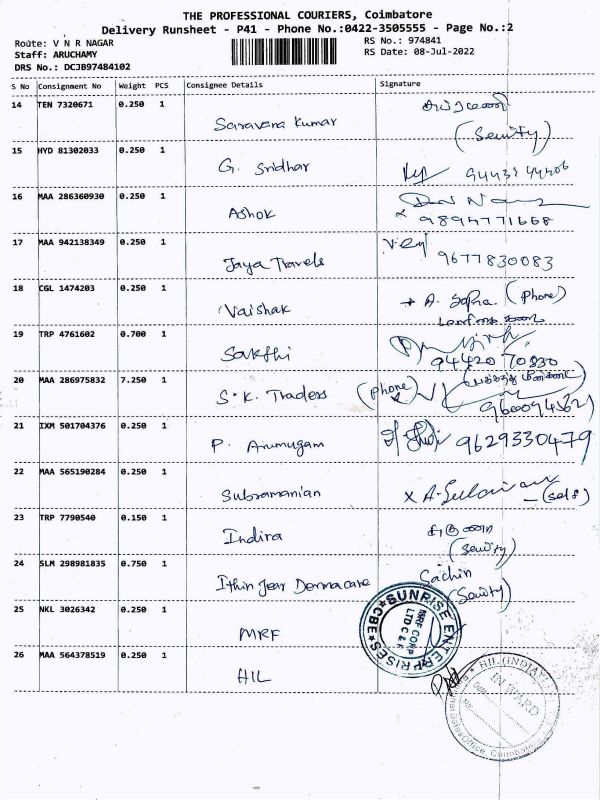 THE PROFESSIONAL COURIERS, Coimbatore
Delivery Runsheet - P41 - Phone No.:0422-3505555 - Page No.:2
Route: V N R NAGAR
RS No.: 974841
Staff: ARUCHAMY
RS Date: 08-Jul-2022
DRS No.: DCJB97484102
S No Consignment No Weight PCS Consignee Details Signature
14 TEN 7320671 0.250 1
Saravana Kumar
(Seurity)
15 HYD 81302033 0.250 1
G. Sridhar
16 MAA 286360930 0.250 1
Ashok
9894771668
17 MAA 942138349 0.250 1
Jaya Travels 9677830083
18 CGL 1474203 0.250 1
Vaishak A. (Phone)
19 TRP 4761602 0.700 1
Sakthi
94420 70830
20 MAA 286975832 7.250 1
S.K. Traders (Phone)
21 IXM 501704376 0.250 1
P. Arumugam 9629330479
22 MAA 565190284 0.250 1
Subramanian X (self)
23 TRP 7790540 0.150 1
Indira
(Seurity)
24 SLM 298981835 0.750 1
Sachin
Ithin Jear Dermacare (Seurity)
25 NKL 3026342 0.250 1
MRF
SUNRISE ENTERPRISES CBE
MRF CORP LTD C & F
26 MAA 564378519 0.250 1
HIL
HIL (INDIA)
INWARD